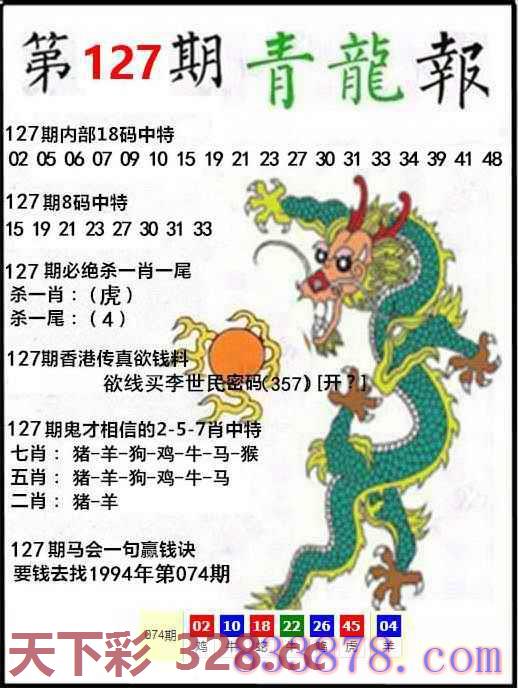 第127期青龍報
127期内部18码中特
02 05 06 07 09 10 15 19 21 23 27 30 31 33 34 39 41 48
127期8码中特
15 19 21 23 27 30 31 33
127期必绝杀一肖一尾
杀一肖：（虎）
杀一尾：（4）
127期香港传真欲钱料
欲线买李世民密码(357)[开？]
127期鬼才相信的2-5-7肖中特
七肖：猪-羊-狗-鸡-牛-马-猴
五肖：猪-羊-狗-鸡-牛-马
二肖：猪-羊
127期马会一句赢钱诀
要钱去找1994年第074期
074期 02 10 18 22 26 45 04
鸡 牛 虎 羊
天下彩 328.cc
033878.com